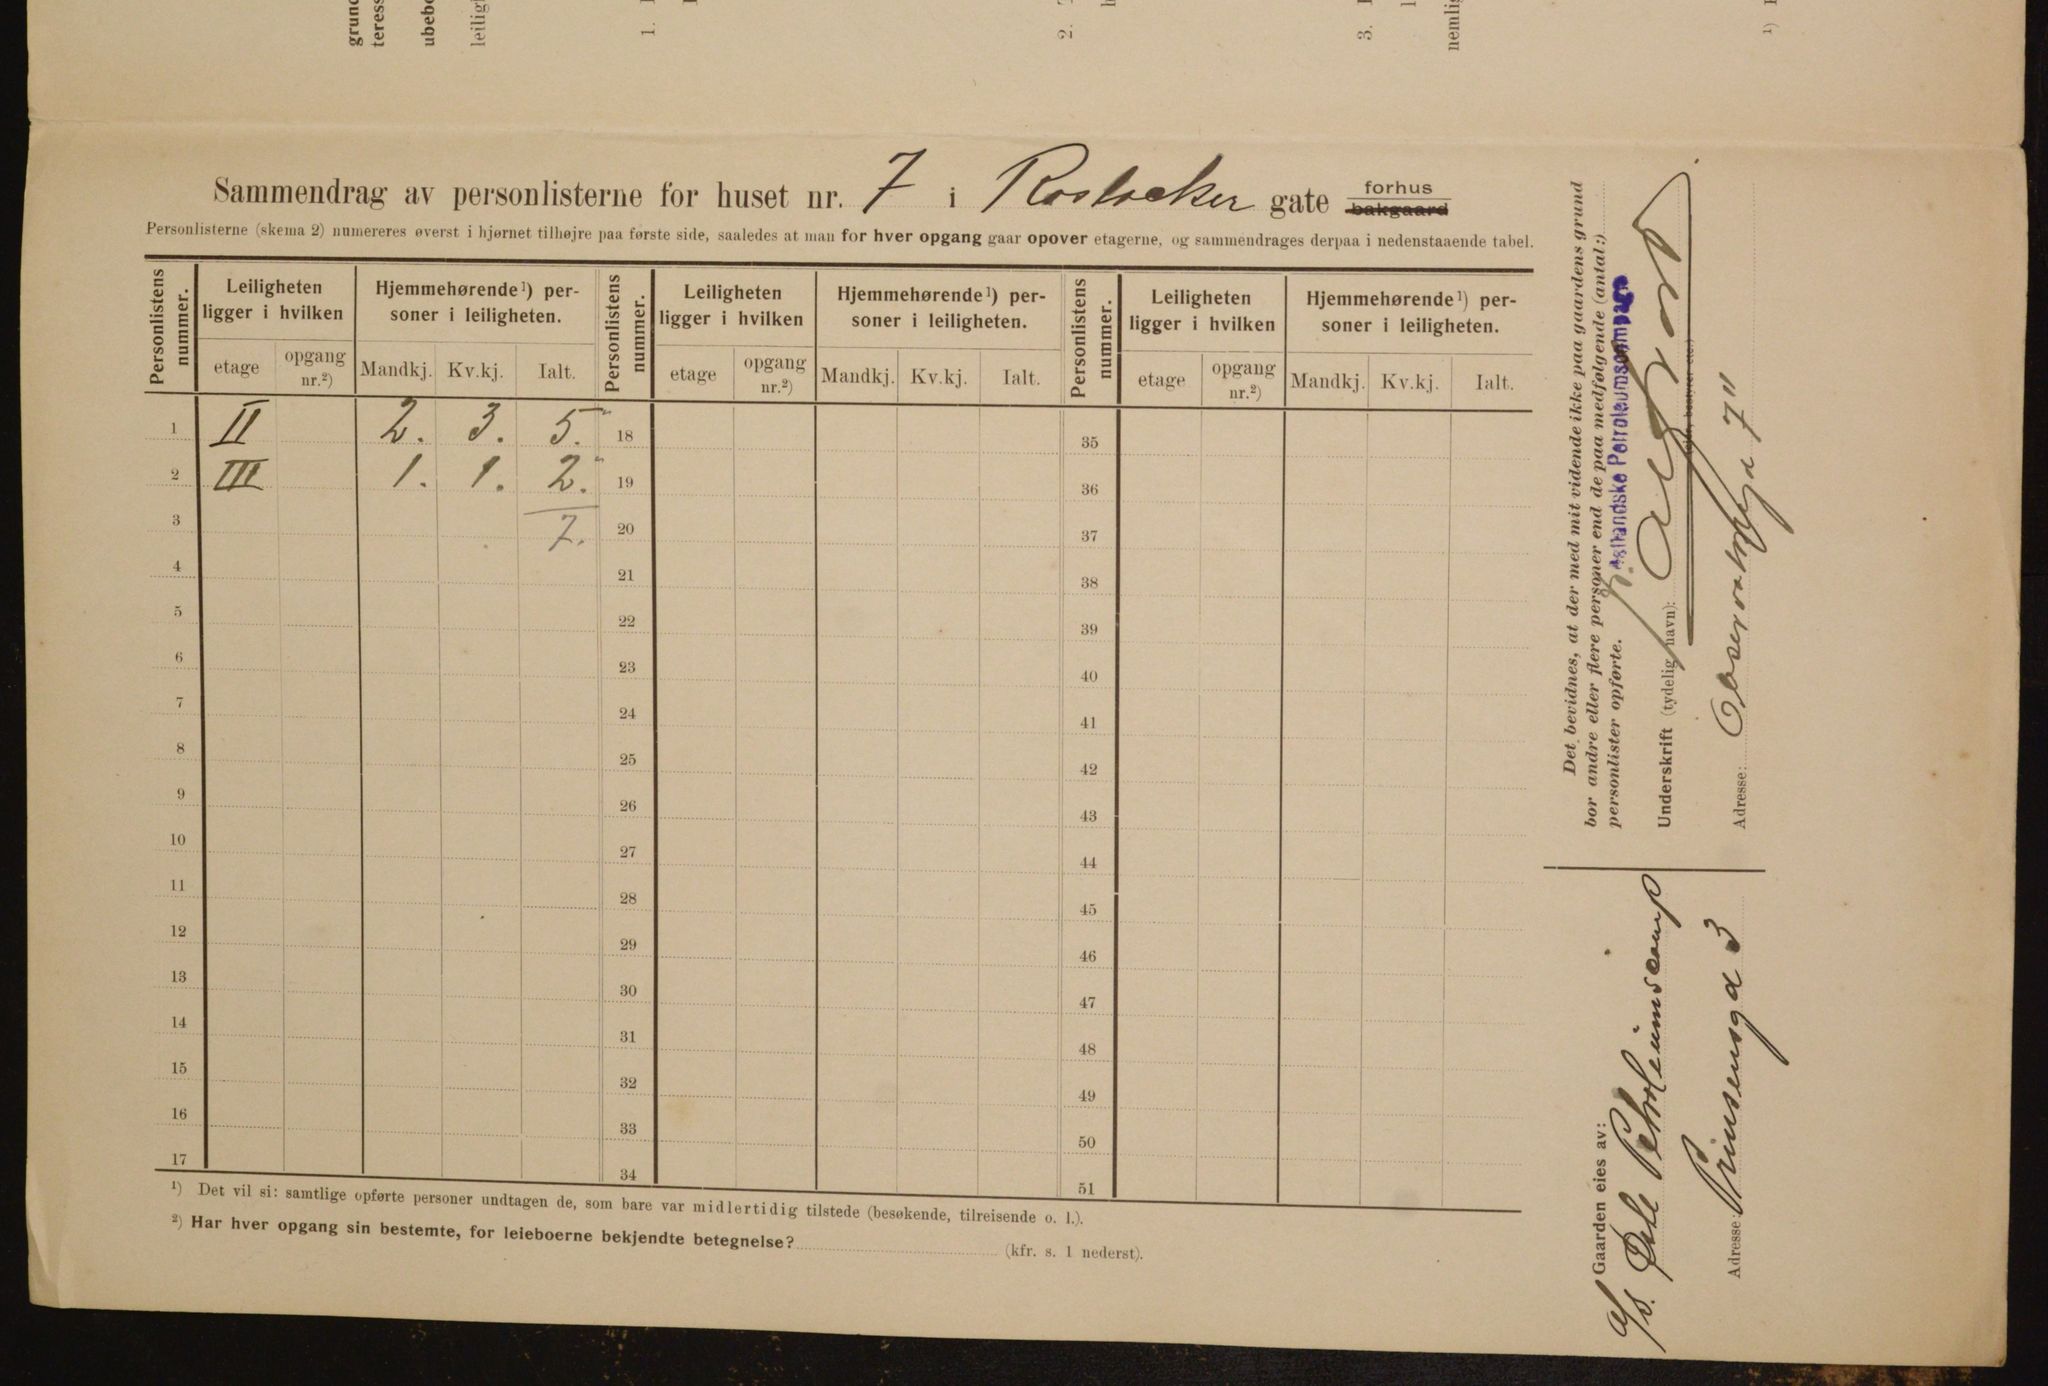 grund
teress
ubebo
leiligh
1.
2.
3.
nemlig
¹)
Sammendrag av personlisterne for huset nr. 7 i Rostocker gate forhus bakgaard
Personlisterne (skema 2) numereres øverst i hjørnet tilhøjre paa første side, saaledes at man for hver opgang gaar opover etagerne, og sammendrages derpaa i nedenstaaende tabel.
Personlistens nummer. Leiligheten ligger i hvilken Hjemmehørende¹) personer i leiligheten. Personlistens nummer. Leiligheten ligger i hvilken Hjemmehørende¹) personer i leiligheten. Personlistens nummer. Leiligheten ligger i hvilken Hjemmehørende¹) personer i leiligheten.
etage opgang nr.²) Mandkj. Kv.kj. Ialt. etage opgang nr.²) Mandkj. Kv.kj. Ialt. etage opgang nr.²) Mandkj. Kv.kj. Ialt.
1 II 2. 3. 5. 18 35
2 III 1. 1. 2. 19 36
3 7. 20 37
4 21 38
5 22 39
6 23 40
7 24 41
8 25 42
9 26 43
10 27 44
11 28 45
12 29 46
13 30 47
14 31 48
15 32 49
16 33 50
17 34 51
¹) Det vil si: samtlige opførte personer undtagen de, som bare var midlertidig tilstede (besøkende, tilreisende o. l.).
²) Har hver opgang sin bestemte, for leieboerne bekjendte betegnelse? (kfr. s. 1 nederst).
Det bevidnes, at der med mit vidende ikke paa gaardens grund
bor andre eller flere personer end de paa medfølgende (antal:)
personlister opførte.
Østlandske Petroleumscompagni
Underskrift (tydelig navn):
(eier, bestyrer etc.)
Adresse: Observatoriegd 7"
Gaarden eies av:
a/s. Østl. Petroleumscomp
Adresse: Prinsensgd 3